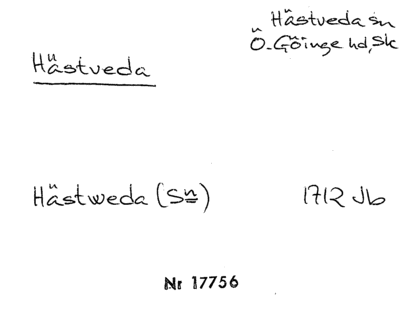 Hästveda sn
Ö. Göinge hd, Sk
Hästveda
Hästweda (Sn) 1712 Jb
Nr 17756